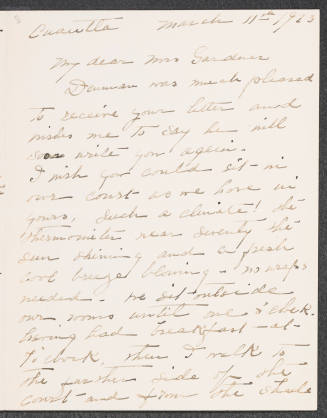 Cuautla March 11th 1923
My dear Mrs Gardner
Denman was much pleased
to receive your letter and
wishes me to say he will
soon write you again.
I wish you could sit in
our court as we have in
yours, Such a climate! the
thermometer near seventy the
sun shining and a fresh
cool breeze blowing - no wraps
needed. We sit outside
our rooms until one o'clock.
having had breakfast at
o'clock, then I walk to
the farther side of the
court and from the shade